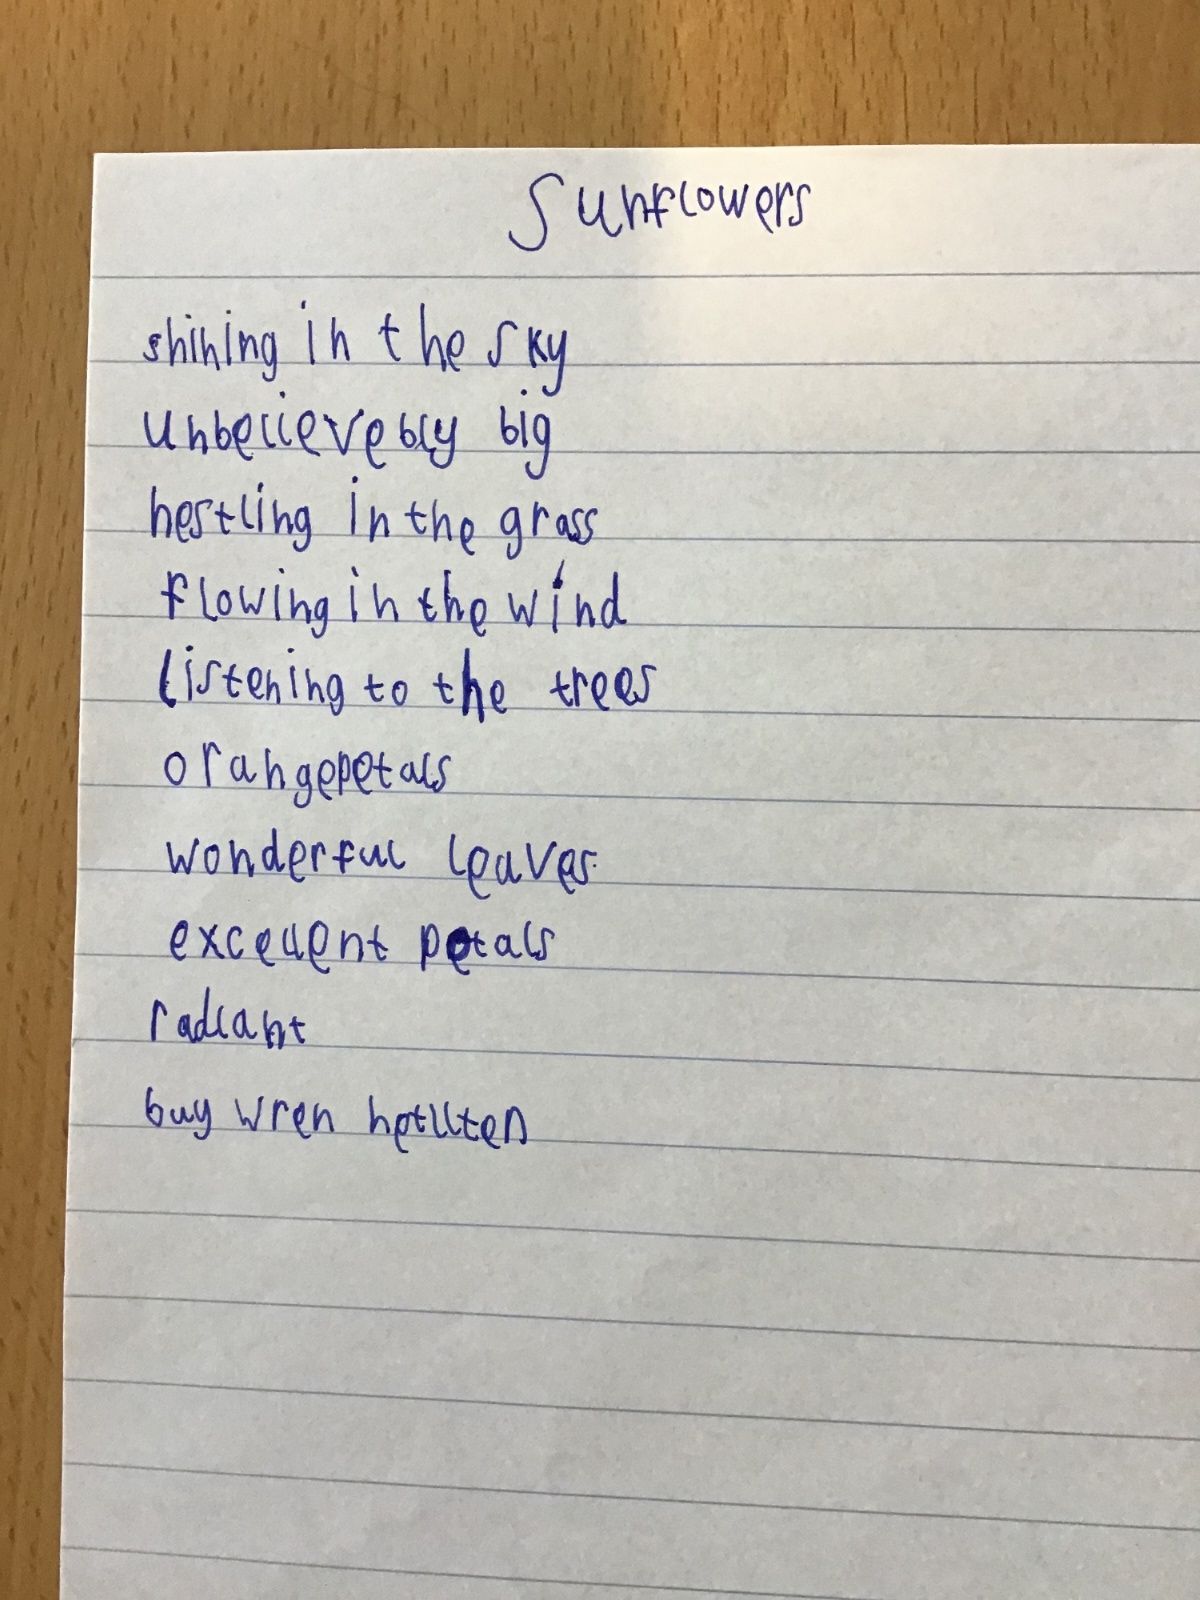 Sunflowers
shining in the sky
unbelievebly big
nestling in the grass
flowing in the wind
listening to the trees
orangepetals
wonderful leaves
excellent petals
radiant
buy wren